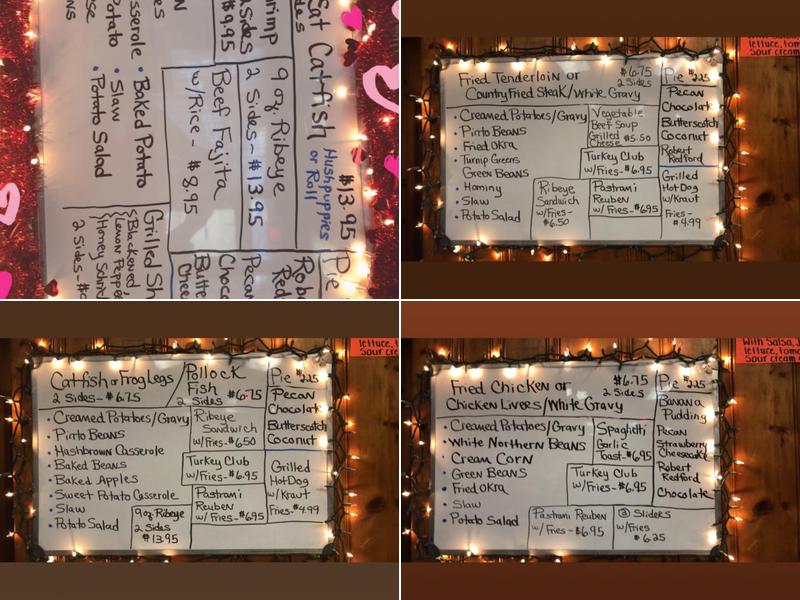 Eat Catfish $13.95
Hushpuppies
or Roll
9 oz. Ribeye
2 Sides - $13.95
Beef Fajita
w/Rice - $8.95
$9.95
• Baked Potato
• Slaw
• Potato Salad
Pie
Grilled
Blackened,
Lemon Pepper
2 Sides -
lettuce, tom
Sour cream
Fried Tenderloin or
Country Fried Steak/White Gravy
$6.75
2 Sides
Pie $2.25
Pecan
Chocolate
Butterscotch
Coconut
Robert
Redford
• Creamed Potatoes/Gravy
• Pinto Beans
• Fried Okra
• Turnip Greens
Green Beans
• Hominy
• Slaw
• Potato Salad
Vegetable
Beef Soup
Grilled
Cheese $5.50
Turkey Club
w/Fries - $6.95
Ribeye
Sandwich
w/Fries -
$6.50
Pastrami
Reuben
w/Fries - $6.95
Grilled
Hot Dog
w/Kraut
Fries -
$4.99
lettuce, t
Sour cream
Catfish or Frog Legs
2 Sides - $6.75
Pollock
Fish
2 Sides $6.75
Pie $2.25
Pecan
Chocolate
Butterscotch
Coconut
• Creamed Potatoes/Gravy
• Pinto Beans
• Hashbrown Casserole
• Baked Beans
• Baked Apples
• Sweet Potato Casserole
• Slaw
• Potato Salad
Ribeye
Sandwich
w/Fries - $6.50
Turkey Club
w/Fries - $6.95
Pastrami
Reuben
w/Fries - $6.95
9 oz. Ribeye
2 Sides
$13.95
Grilled
Hot Dog
w/Kraut
Fries - $4.99
With Salsa, J
lettuce, toma
Sour cream
Fried Chicken or
Chicken Livers/White Gravy
$6.75
2 Sides
Pie $2.25
Banana
Pudding
Pecan
Strawberry
Cheesecake
Robert
Redford
Chocolate
• Creamed Potatoes/Gravy
• White Northern Beans
• Cream Corn
• Green Beans
• Fried Okra
• Slaw
• Potato Salad
Spaghetti
Garlic
Toast - $6.95
Turkey Club
w/Fries - $6.95
Pastrami Reuben
w/Fries - $6.95
3 Sliders
w/Fries
$6.25